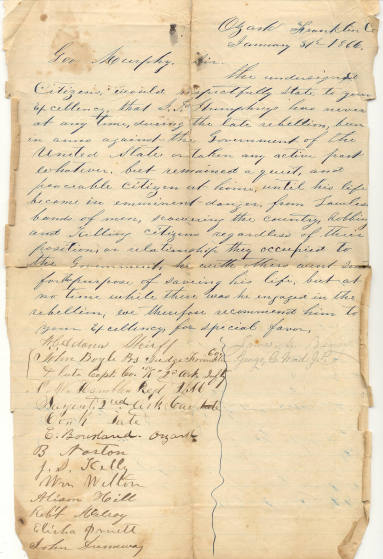 Ozark Franklin Co
January 31st 1866.
Gov Murphy, Sir.
The undersigned
Citizens, would respectfully state to your
Excellency, that Humphreys has never
at any time, during the late rebellion, been
in arms against the Government of the
United States or taken any active part
whatever, but remained a quiet, and
peaceable citizen at home, until his life
become in eminent danger, from Lawless
bands of men, scowering the country, Robbing
and Killing citizens regardless of their
position, or relationship they occupied to
the Government, he with others went South
for the purpose of saving his life, but at
no time while there was he engaged in the
rebellion, we therefore recommend him to
your Excellency, for special favor.
Sheriff
John Doyle Judge Franklin Co
& late Capt. Co. "K" 2d Ark Infty
Ark Cav late
E. Bourland Ozark
B Norton
J. S. Kelly
Wm Wilton
Alison Hill
Robt McElroy
Elisha Pruett
John Dunaway